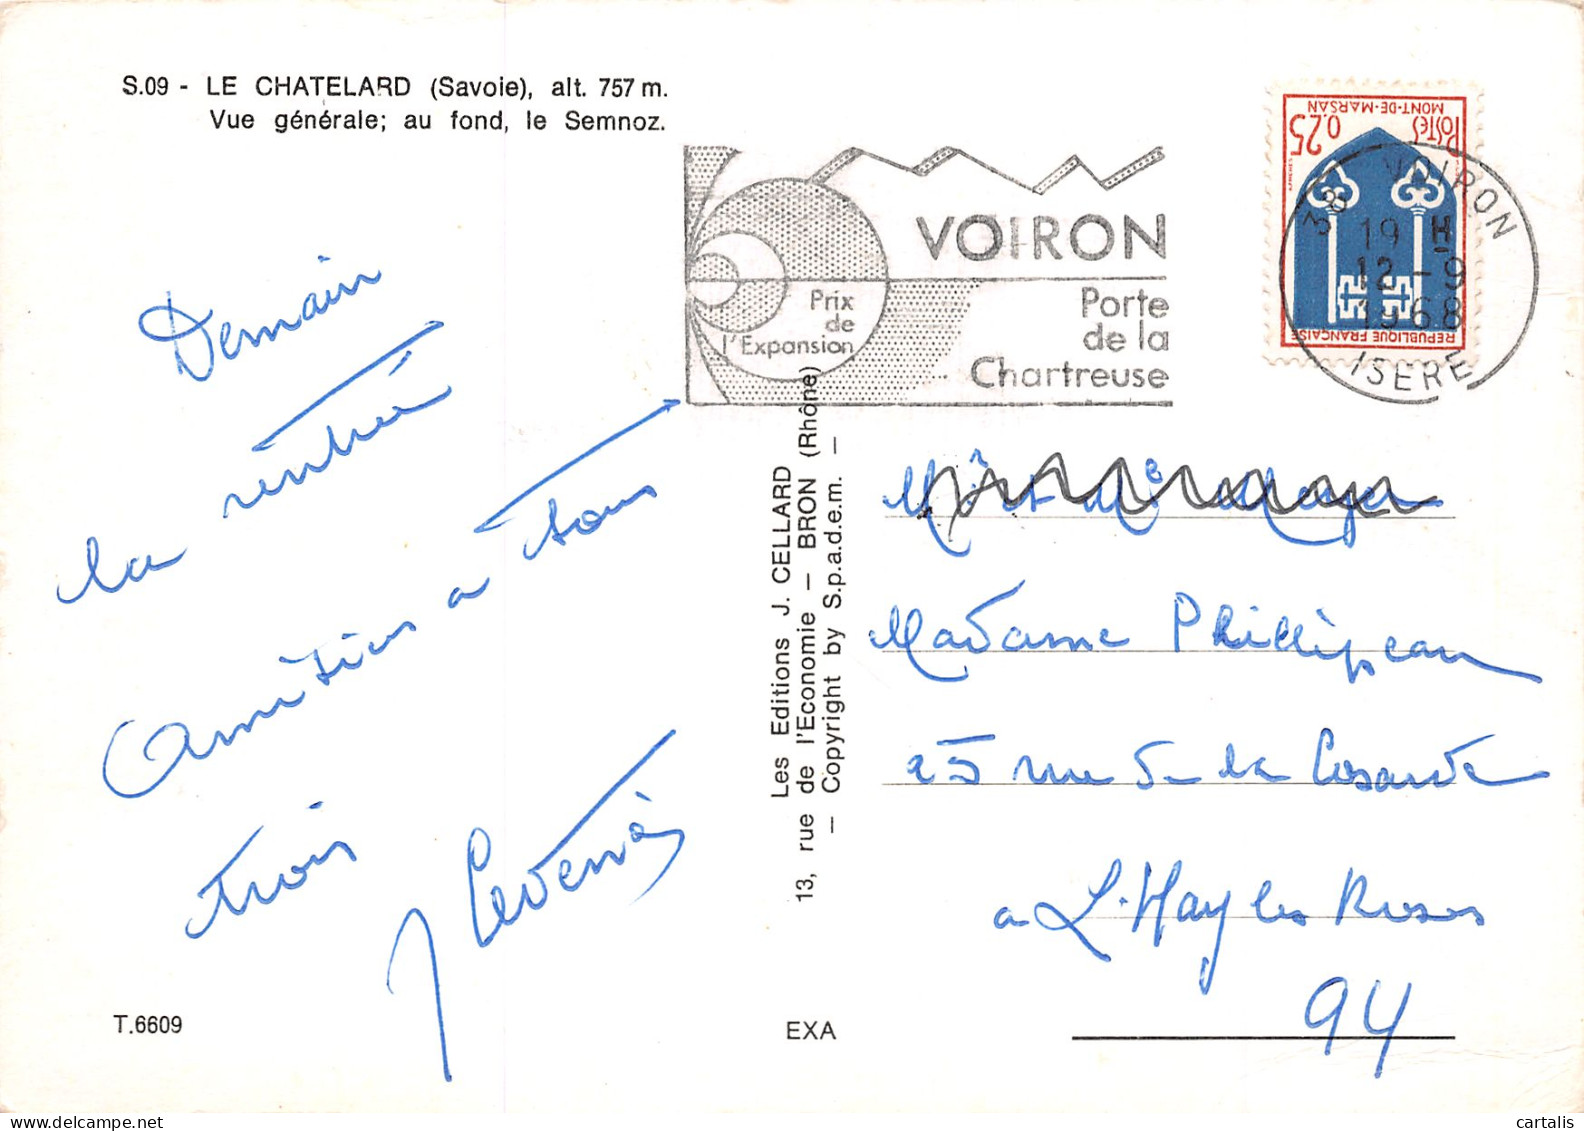 S.09 - LE CHATELARD (Savoie), alt. 757 m.
Vue générale; au fond, le Semnoz.
Demain
la rentrée
Amitiés a tous
trois
T.6609
VOIRON
Prix
de
l'Expansion
Porte
de la
Chartreuse
POSTES 0.25
MONT-DE-MARSAN
REPUBLIQUE FRANÇAISE
38 VOIRON
19 H
12 - 9
1968
ISERE
Les Editions J. CELLARD
13, rue de l'Economie — BRON (Rhône)
— Copyright by S.p.a.d.e.m. —
EXA
Madame Phillipeau
25 rue de la Cosarde
a L'Hay les Roses
94
cartalis